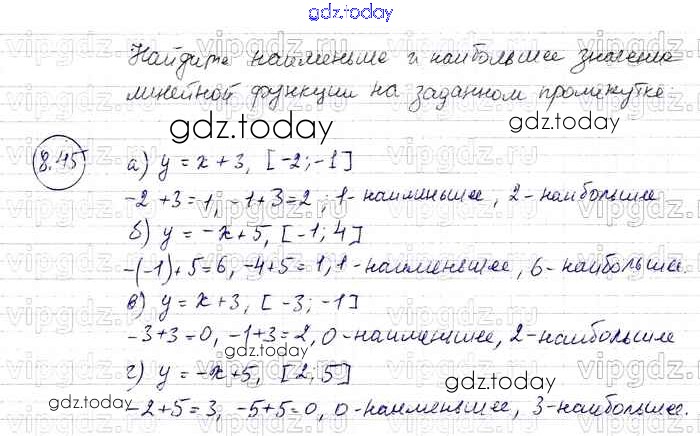 gdz.today
Найдите наименьшее и наибольшее значение
линейной функции на заданном промежутке
gdz.today
gdz.today
8.45
а) y = x + 3, [-2; -1]
-2 + 3 = 1, -1 + 3 = 2; 1 - наименьшее, 2 - наибольшее
gdz.today
б) y = -x + 5, [-1; 4]
-(-1) + 5 = 6, -4 + 5 = 1, 1 - наименьшее, 6 - наибольшее.
в) y = x + 3, [-3; -1]
-3 + 3 = 0, -1 + 3 = 2, 0 - наименьшее, 2 - наибольшее
gdz.today
г) y = -x + 5, [2, 5]
gdz.today
gdz.today
-2 + 5 = 3, -5 + 5 = 0, 0 - наименьшее, 3 - наибольшее.